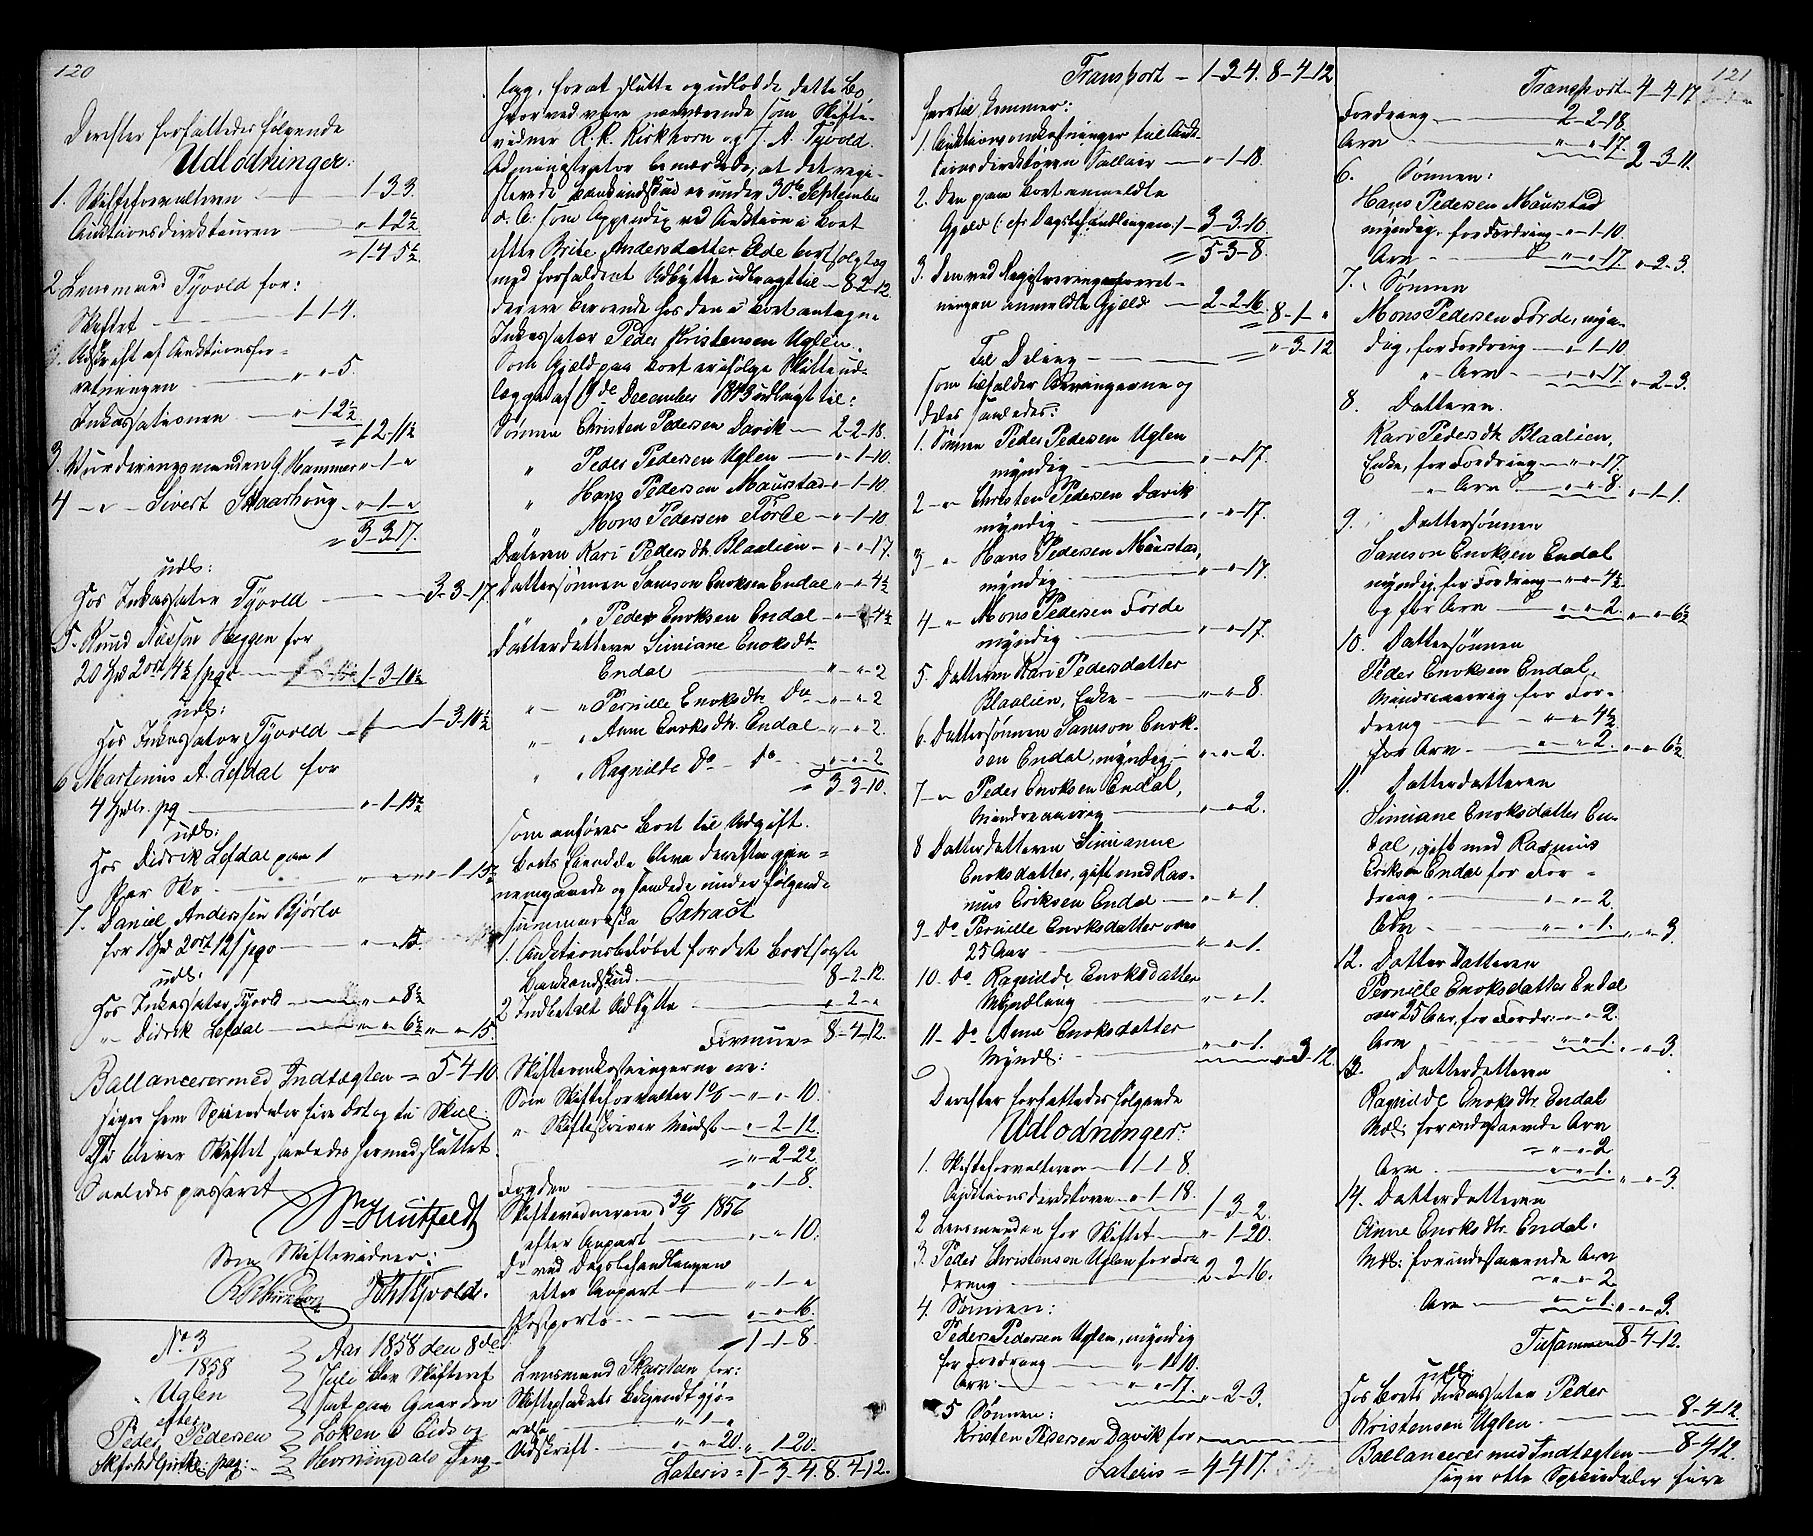 120
Derefter forfattedes følgende
Udlodninger:
1. Skifteforvalteren 1-3-3.
Auktionsdirekteuren " 1-2½
= 1-4-5½
2. Lensmand Tyvold for:
Skiftet 1-1-4.
Afskrift af Auktionsfor-
retningen " " 5.
Inkassationen " 12½
= 1-2-11½
3. Vurderingsmanden G. Hammer " 1 "
4 " Sivert Skaarhoug " 1 "
= 3-3-17.
udl:
Hos Inkassator Tyvold 3-3-17.
5. Knud Nilssen Heggen for
1-3-10½
udl:
Hos Inkassator Tyvold 1-3-10½
6 Martinus A. Lefdal for
" 1-15½
udl:
Hos Didrik Lefdal paa 1
Par Sko " 1-15½
7. Daniel Anderssen Bjørlo
" " 15
udl.
Hos Inkassator Tyvold " " 8½
" Didrik Lefdal " " 6½ " " 15.
Ballancerer med Indtægten = 5-4-10
siger fem Speciedaler fire Ort og ti Skill.
Thi bliver Skiftet saaledes hermed sluttet.
Saaledes passeret
Huitfeldt
Som Skiftevidner:
R. R. Kirkhorn J. A. Tyvold.
No 3
1858
Uglen
efter
Peder Pedersen
Aar 1858 den 8de
Juli blev Skifteret
sat paa Gaarden
Løken i Eids og
Hornindals Ting-
lag, for at slutte og udlodde dette Bo,
hvorved vare nærværende som Skifte-
vidner R. R. Kirkhorn og J. A. Tyvold.
Administrator bemærkede, at det regi-
strerede Bankindskud er under 30te September
d. A. som Appendix ved Auktion i Boet
efter Brite Andersdatter Eide bortsolgt og
med forfaldent Udbytte udbragt til 8-2-12.
der ere beroende hos den i Boet antagne
Inkassator Peder Christensen Uglen.
Som Gjæld paa Boet er ifølge Skifteud-
lægget af 19de December 1843 udlagt til:
Sønnen Christen Pedersen Davik 2-2-18.
" Peder Pedersen Uglen " 1-10.
" Hans Pedersen Maurstad " 1-10.
" Mons Pedersen Førde " 1-10
Datteren Kari Pedersdtr. Blaalien " " 17.
Dattersønnen Samson Enoksen Endal " " 4½
" " Peder Enoksen Endal " " 4½
Datterdatteren Simiane Enoksdtr.
Endal " " 2
" " Pernille Enoksdtr. Do " " 2
" " Anne Enoksdtr. Endal " " 2.
" " Ragnilde Do Do " " 2
= 3-3-10.
som anføres Boet til Udgift.
Boets Eiendele bleve derefter gjen-
nemgaaede og samlede under følgende
summariske Extract
1. Auktionsbeløbet for det bortsolgte
Bankindskud 8-2-12
2 Indbetalt Udbytte " 2 "
Formue = 8-4-12.
Skifteomkostningerne ere:
Som Skifteforvalter " " 10.
" Skifteskriver Mindst " 2-12.
= " 2-22.
Fogden " 1-8.
Skiftevidnerne 30/9 1856
efter Anpart " " 10.
Do ved Dagsbehandlingen
efter Anpart " 1 "
Postporto " " 16.
1-1-8.
Lensmand Skarstein for:
Skifteplakats Bekjendtgjø-
relse " 1 "
Udskrift " " 20. " 1-20.
Lateris = 1-3-4. 8-4-12.
Transport 1-3-4. 8-4-12
hertil kommer:
1. Auktionsomkostninger til Auk-
tionsdirektøren Sollair " 1-18.
2. Den paa Boet anmeldte
Gjæld (: cfr Dagsbehandlingen :) 3-3-10.
= 5-3-8.
3. Den ved Registreringsforret-
ningen anmeldte Gjæld 2-2-16.
= 8-1 "
Til Deling = " 3-12
som tilfalder Arvingerne og
deles saaledes:
1. Sønnen Peder Pedersen Uglen
myndig " " 17.
2 " Christen Pedersen Davik
myndig " " 17.
3 " Hans Pedersen Maurstad,
myndig " " 17.
4 " Mons Pedersen Førde
myndig " " 17.
5. Datteren Kari Pedersdatter
Blaalien, Enke " " 8.
6. Dattersønnen Samson Enok-
sen Endal, myndig " " 2.
7 " Peder Enoksen Endal,
Mindreaarig " " 2.
8 Datterdatteren Simianne
Enoksdatter, gift med Ras-
mus Eriksen Endal " " 1.
9 Do Pernille Enoksdatter over
25 Aar " " 1.
10. Do Ragnilde Enoksdatter
Myndling " " 1.
11 Do Anne Enoksdatter
Myndl: " " 1. " 3-12.
Derefter forfattedes følgende
Udlodninger:
1. Skifteforvalteren 1-1-8.
Auktionsdirektøren " 1-18. 1-3-2.
2 Lensmanden for Skiftet " 1-20.
3. Peder Christensen Uglen for For-
dring 2-2-16.
4. Sønnen:
Peder Pedersen Uglen, myndig
for Fordring " 1-10.
Arv " " 17. " 2-3.
5 Sønnen:
Kristen Pedersen Davik for
Lateris = 4-4-17.
121
Transport 4-4-17
Fordring 2-2-18.
Arv " " 17. 2-3-11.
6. Sønnen:
Hans Pedersen Maurstad
myndig, for Fordring " 1-10.
Arv " " 17. " 2-3.
7. Sønnen
Mons Pedersen Førde, myn-
dig, for Fordring " 1-10.
" Arv " " 17. " 2-3.
8. Datteren.
Kari Pedersdtr. Blaalien,
Enke, for Fordring " " 17.
" Arv " " 8. " 1-1.
9. Dattersønnen
Samson Enoksen Endal
myndig for Fordring " " 4½
og for Arv " " 2. " " 6½
10. Dattersønnen
Peder Enoksen Endal,
Mindreaarig for For-
dring " " 4½
for Arv " " 2. " " 6½
11. Datterdatteren
Simiane Enoksdatter En-
dal, gift med Rasmus
Eriksen Endal for For-
dring " " 2.
Arv " " 1. " " 3.
12. Datterdatteren
Pernille Enoksdatter Endal
over 25 Aar, for Fordr: " " 2.
Arv " " 1. " " 3.
13. Datterdatteren
Ragnilde Enoksdtr. Endal
Mdl: for indestaaende Arv
" " 2
Arv " " 1. " " 3.
14. Datterdatteren
Anne Enoksdtr. Endal.
Mdl: for indestaaende Arv
" " 2
Arv " " 1. " " 3.
Tilsammen 8-4-12.
udl:
Hos Boets Inkassator Peder
Kristensen Uglen 8-4-12.
Ballancerer med Indtægten 8-4-12.
siger otte Speciedaler fire